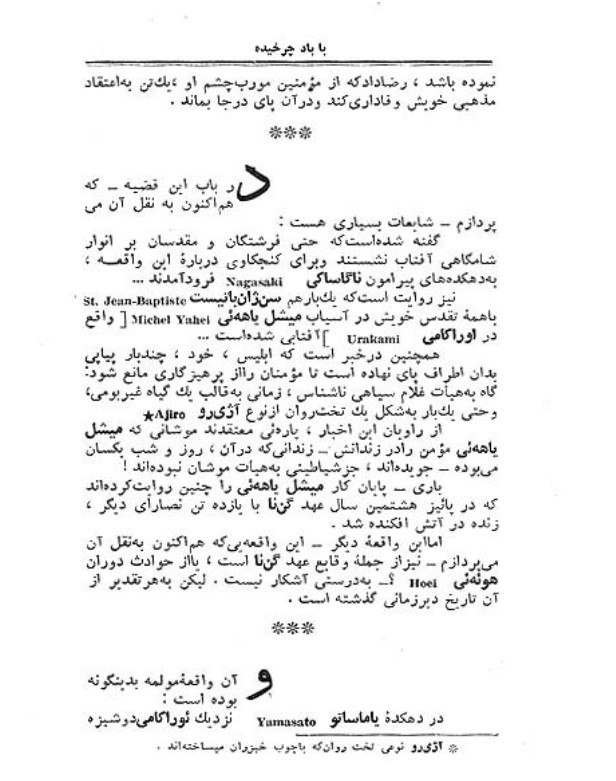 با باد چرخیده
نموده باشد ، رضاداد‌که از مؤمنین مورب‌چشم او ،یك‌تن به‌اعتقاد
مذهبی خویش وفاداری‌کند ودرآن پای درجا بماند .
***
در باب این قضیه ــ که
هم‌اکنون به نقل آن می
پردازم ــ شایعات بسیاری هست :
گفته شده‌است‌که حتی فرشتگان و مقدسان بر انوار
شامگاهی آفتاب نشستند وبرای کنجکاوی دربارهٔ این واقعـه ،
به‌دهکده‌های پیرامون ناگاساکی Nagasaki فرودآمدند ...
نیز روایت است‌که یك‌بارهم سن‌ژان‌باتیست St. Jean-Baptiste
باهمهٔ تقدس خویش در آسیاب میشل یاهه‌ئی Michel Yahei [ واقع
در اوراکامی Urakami ]آفتابی شده‌است ...
همچنین درخبر است که ابلیس ، خود ، چندبار پیاپی
بدان اطراف پای نهاده است تا مؤمنان رااز پرهیزگاری مانع شود:
گاه به‌هیأت غلام سیاهی ناشناس ، زمانی به‌قالب یك گیاه غیربومی،
وحتی یك‌بار به‌شکل یك تخت‌روان ازنوع آژی‌رو Ajiro★
از راویان این اخبار ، پاره‌ئی معتقدند موشانی که میشل
یاهه‌ئی مؤمن رادر زندانش ــ زندانی‌که درآن ، روز و شب یکسان
می‌بوده ــ جویده‌اند ، جزشیاطینی به‌هیأت موشان نبوده‌اند !
باری ــ پایان کار میشل یاهه‌ئی را چنین روایت‌کرده‌اند
که در پائیز هشتمین سال عهد گن‌نا با یازده تن نصارای دیگر ،
زنده در آتش افکنده شد .
امااین واقعهٔ دیگر ــ این واقعه‌یی‌که هم‌اکنون به‌نقل آن
می‌پردازم ــ نیزاز جملهٔ وقایع عهد گن‌نا است ، یااز حوادث دوران
هوئه‌ئی Hoei ؟ــ به‌درستی آشکار نیست . لیکن به‌هرتقدیر از
آن تاریخ دیرزمانی گذشته است .
***
و آن واقعهٔ‌مولمه بدینگونه
بوده است :
در دهکدهٔ یاماساتو Yamasato نزدیك ئوراکامی‌دوشیزه
* آژی‌رو نوعی تخت روان‌که باچوب خیزران میساخته‌اند .